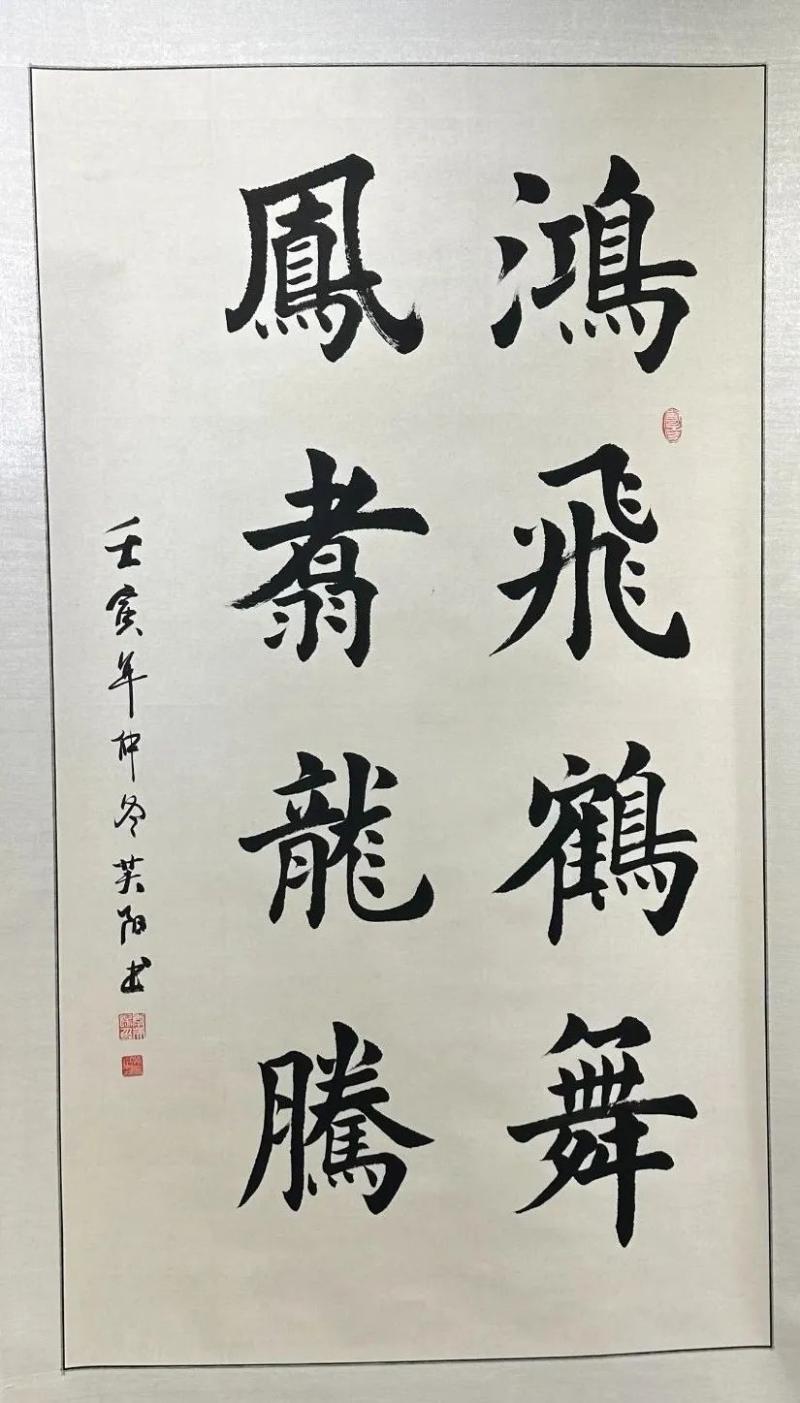 鴻飛鶴舞
鳳翥龍騰
壬寅年仲冬英陽书